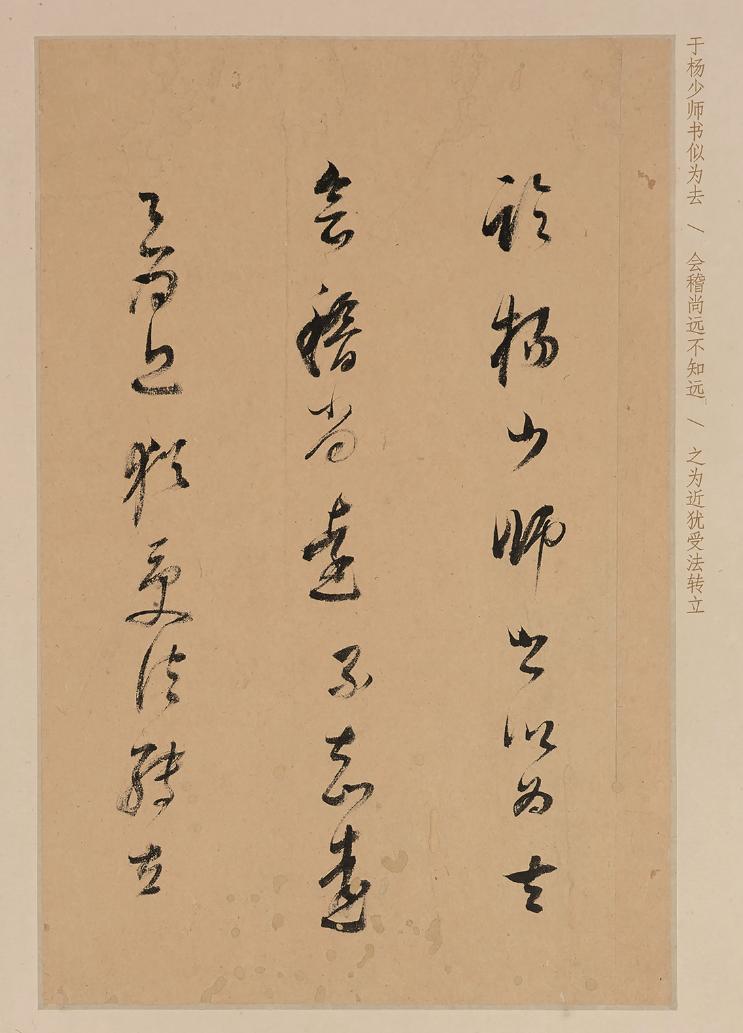 于杨少师书似为去 \ 会稽尚远不知远 \ 之为近犹受法转立
於楊少師書似為去
會稽尚遠不知遠
之為近猶受法轉立